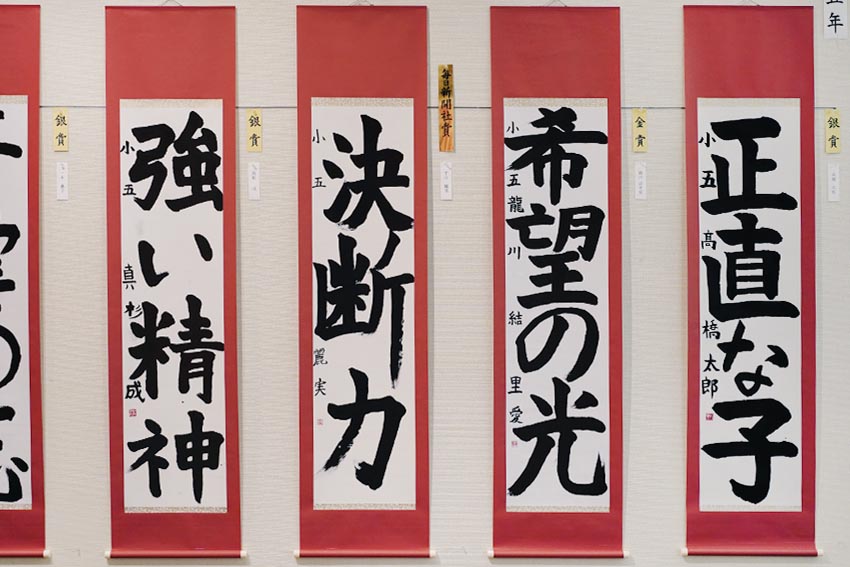 年
銀賞
正直な子
小五 髙橋太郎
金賞
希望の光
小五 龍川結里愛
毎日新聞社賞
決断力
小五 麗実
銀賞
強い精神
小五 真杉成
銀賞